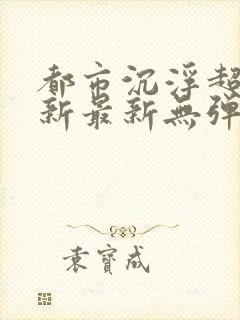 都市沉浮超
新最新無彈
袁寶成